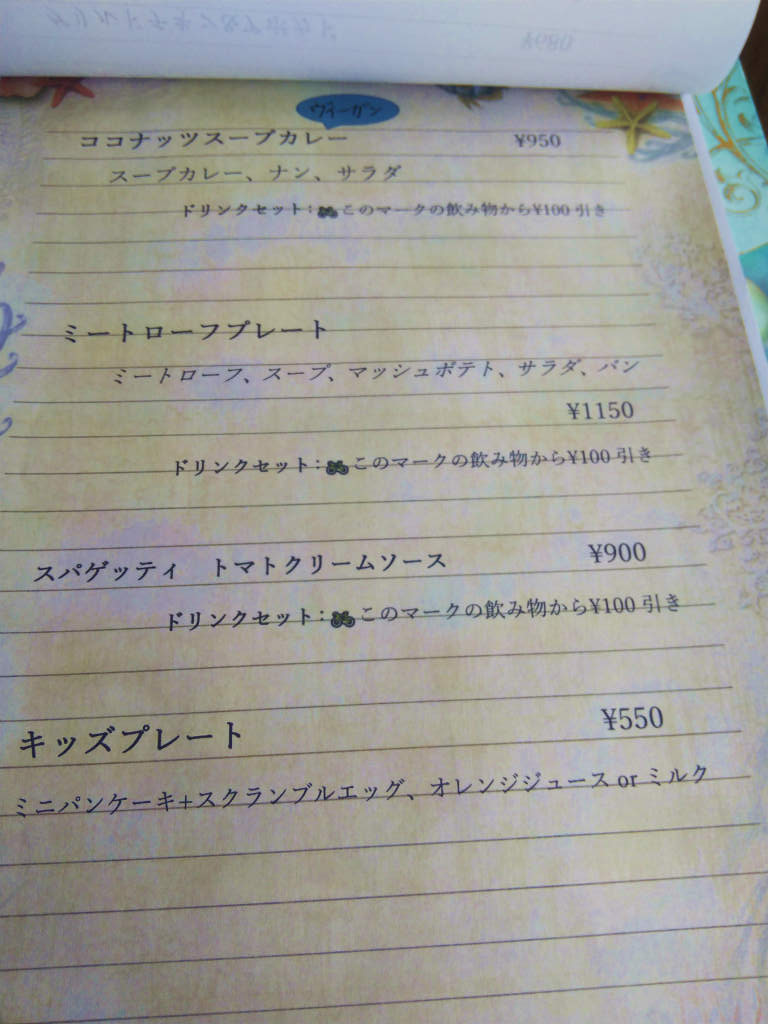 ヴィーガン
ココナッツスープカレー ¥950
スープカレー、ナン、サラダ
ドリンクセット：このマークの飲み物から¥100 引き
ミートローフプレート
ミートローフ、スープ、マッシュポテト、サラダ、パン
¥1150
ドリンクセット：このマークの飲み物から¥100 引き
スパゲッティ　トマトクリームソース ¥900
ドリンクセット：このマークの飲み物から¥100 引き
キッズプレート ¥550
ミニパンケーキ+スクランブルエッグ、オレンジジュース or ミルク